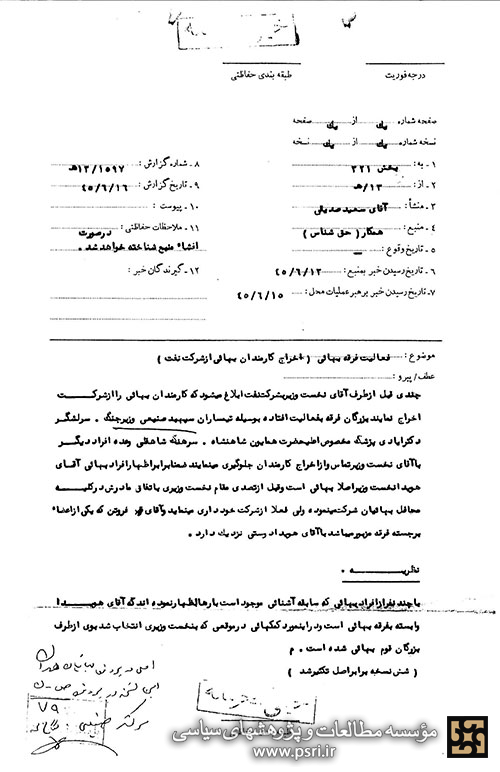 درجه فوریت
طبقه بندی حفاظتی
صفحه شماره یک از یک صفحه
نسخه شماره یک از یک نسخه
۱ - به : بخش ۳۲۱
۲ - از : ۱۳/هـ
۳ - منشأ : آقای سعید صدیقی
۴ - منبع : همکار ( حق شناس )
۵ - تاریخ وقوع :
۶ - تاریخ رسیدن خبر بمنبع : ۴۵/۶/۱۳
۷ - تاریخ رسیدن خبر برهبر عملیات محل : ۴۵/۶/۱۵
۸ - شماره گزارش : ۱۳/۱۵۹۷هـ
۹ - تاریخ گزارش : ۴۵/۶/۱۶
۱۰ - پیوست :
۱۱ - ملاحظات حفاظتی : درصورت
افشاء منبع شناخته خواهد شد .
۱۲ - گیرندگان خبر :
موضوع : فعالیت فرقه بهائی ( اخراج کارمندان بهائی از شرکت نفت )
عطف / پیرو :
چندی قبل از طرف آقای نخست وزیر بشرکت نفت ابلاغ میشود که کارمندان بهائی را از شرکت
اخراج نمایند بزرگان فرقه بفعالیت افتاده بوسیله تیمساران سپهبد صنیعی وزیر جنگ . سرلشگر
دکتر ایادی پزشک مخصوص اعلیحضرت همایون شاهنشاه . سرهنگ شاهقلی وعده افراد دیگر
با آقای نخست وزیر تماس و از اخراج کارمندان جلوگیری مینمایند ضمنا برابر اظهار افراد بهائی آقای
هویدا نخست وزیر اصلا بهائی است وقبل از تصدی مقام نخست وزیری باتفاق مادرش در کلیه
محافل بهائیان شرکت مینموده ولی فعلا از شرکت خود داری مینماید و آقای فروتن که یکی از اعضاء
برجسته فرقه مزبور میباشد با آقای هویدا دوستی نزدیک دارد .
نظریه .
با چند نفر از افراد بهائی که سابقه آشنائی موجود است بارها اظهار نموده اند که آقای هویدا
وابسته بفرقه بهائی است و در اینمورد کمکهائی در موقعی که بنخست وزیری انتخاب شد بوی از طرف
بزرگان قوم بهائی شده است . م
( شش نسخه برابر اصل تکثیر شد )
۷۹
مؤسسه مطالعات و پژوهشهای سیاسی
www.psri.ir